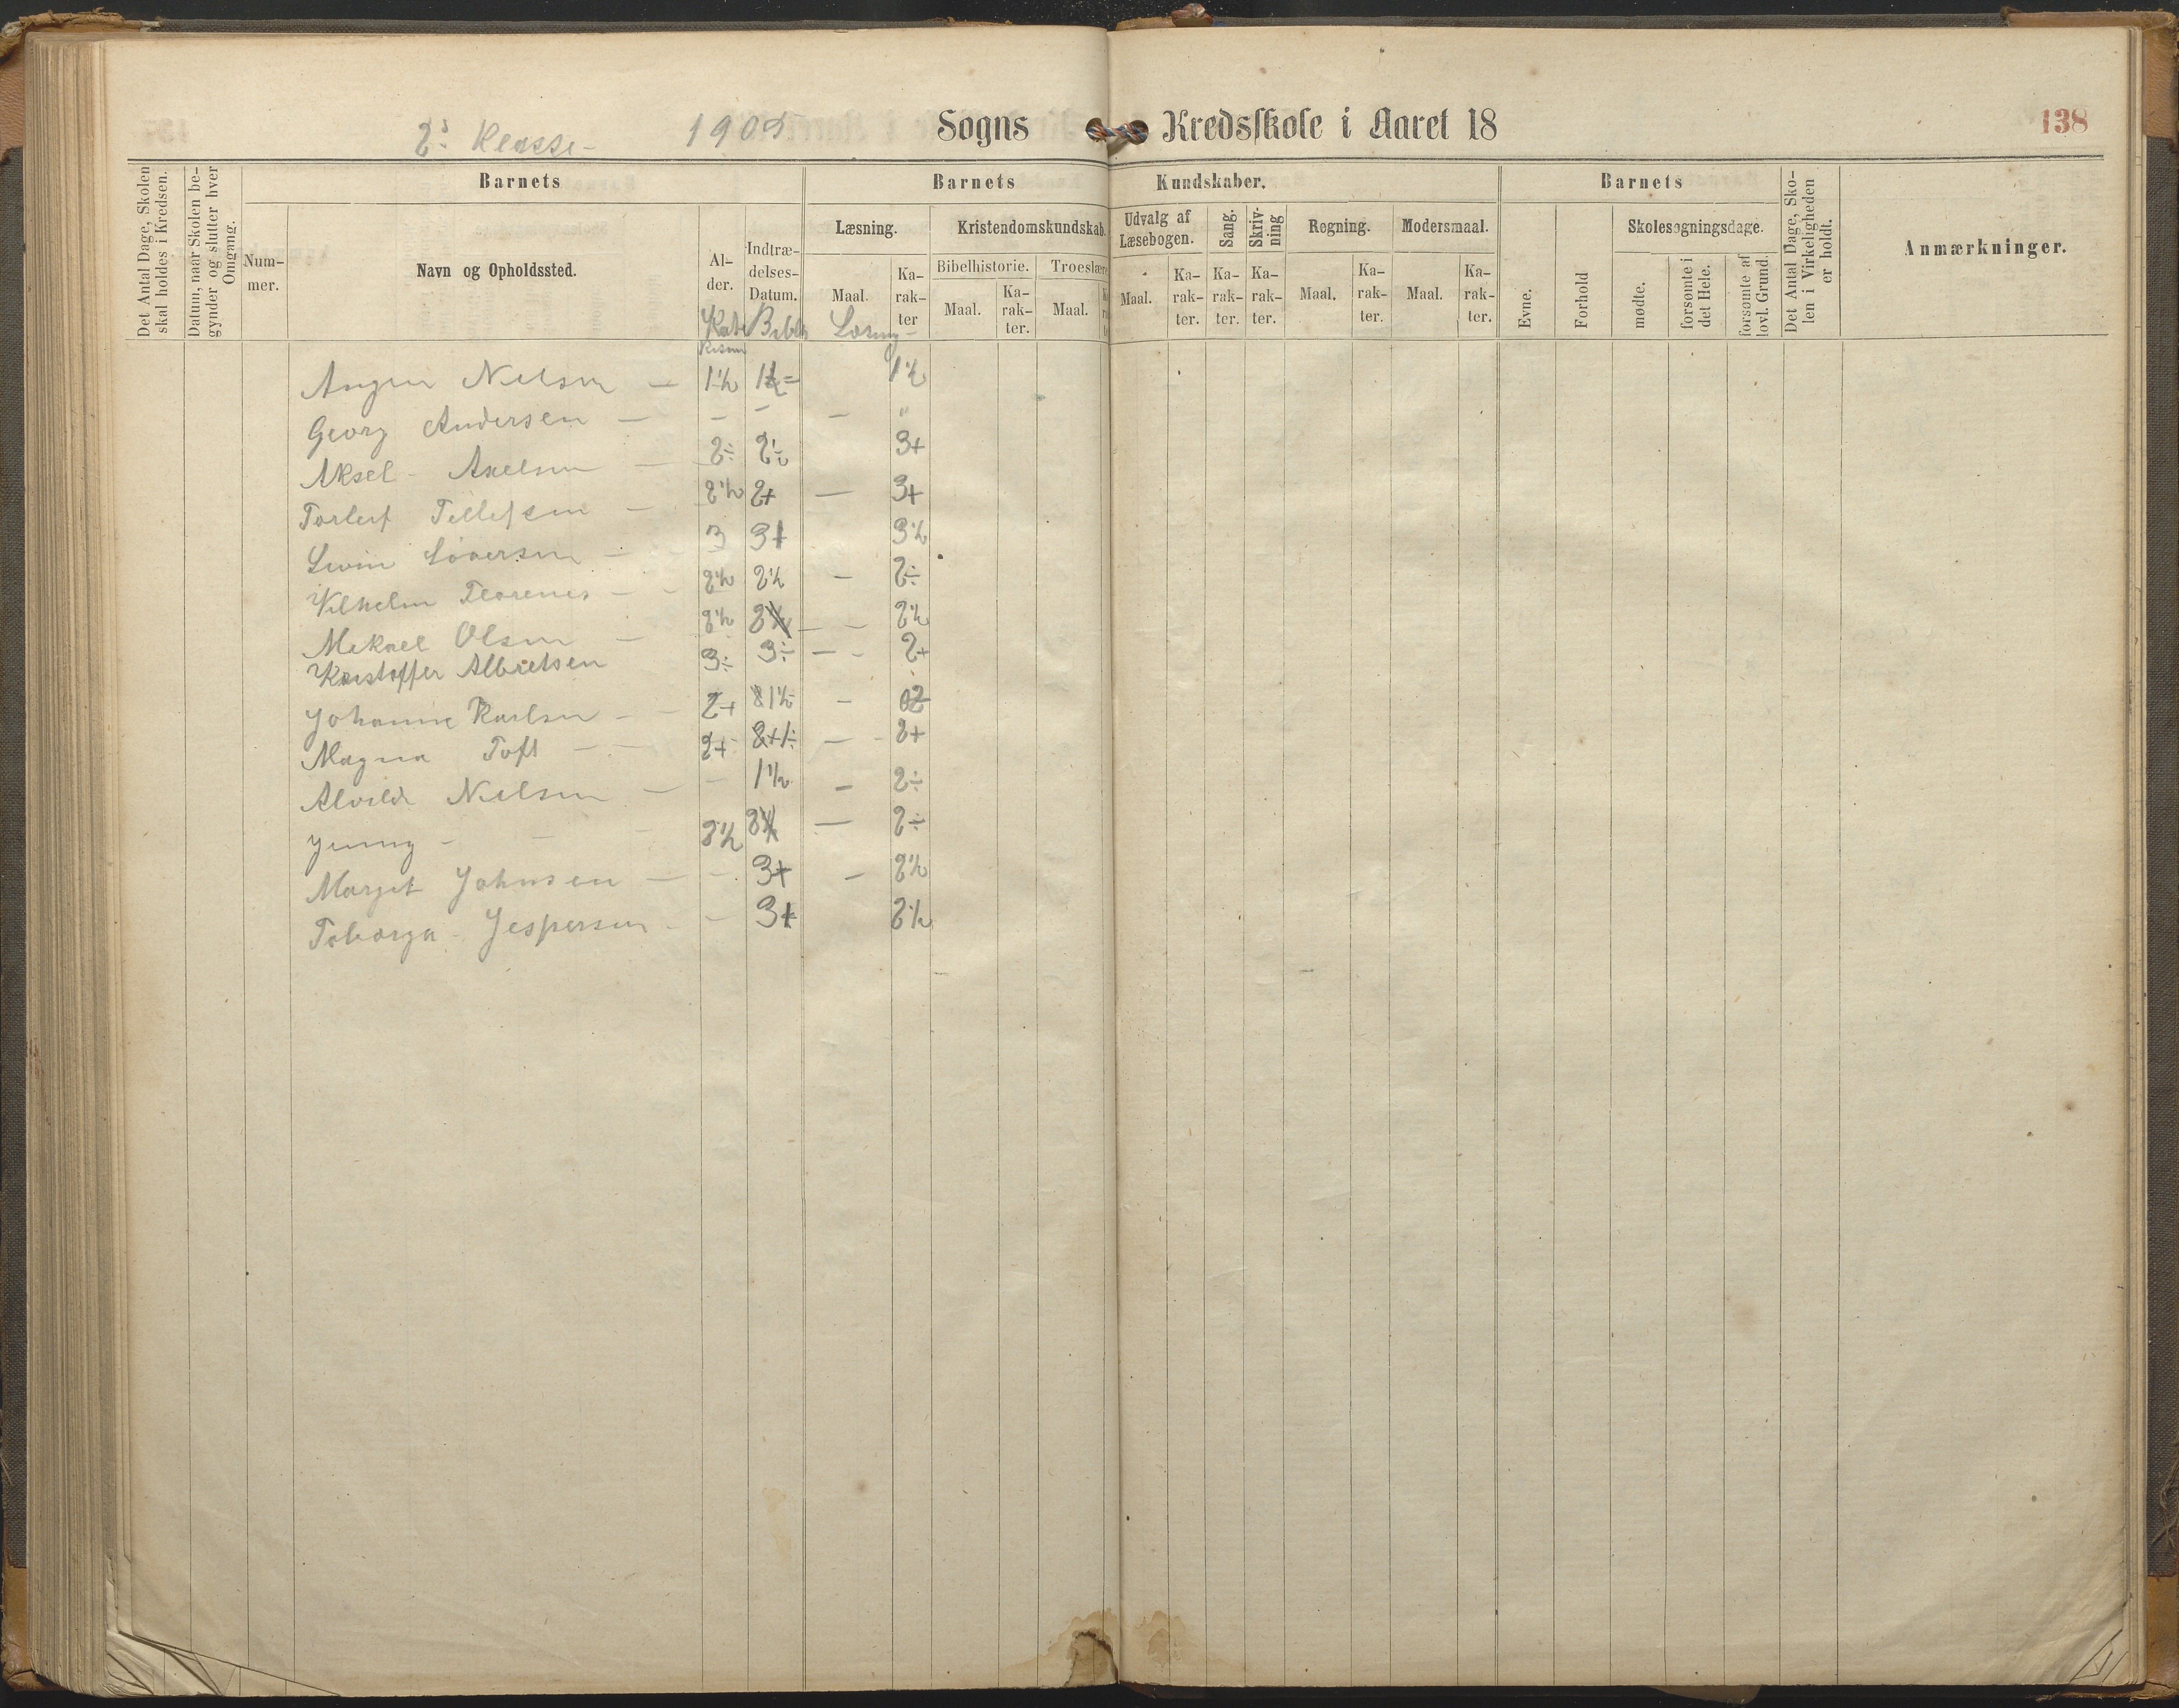 2den Klasse - 1905 Sogns Kredsskole i Aaret 18 138
Det Antal Dage, Skolen skal holdes i Kredsen.
Datum, naar Skolen begynder og slutter hver Omgang.
Barnets
Num-
mer.
Navn og Opholdssted.
Al-
der.
Indtræ-
delses-
Datum.
Barnets Kundskaber.
Læsning.
Maal.
Ka-
rak-
ter
Kristendomskundskab.
Bibelhistorie.
Maal.
Ka-
rak-
ter.
Troeslære
Maal.
Udvalg af
Læsebogen.
Maal.
Ka-
rak-
ter.
Sang.
Ka-
rak-
ter.
Skriv-
ning
Ka-
rak-
ter.
Regning.
Maal.
Ka-
rak-
ter.
Modersmaal.
Maal.
Ka-
rak-
ter.
Barnets
Evne.
Forhold
Skolesøgningsdage.
mødte.
forsømte i
det Hele.
forsømte af
lovl. Grund.
Det Antal Dage, Sko-
len i Virkeligheden
er holdt.
Anmærkninger.
Nilsen — 1½ 1½ 1½
Georg Andersen — — — — "
Aksel - Axelsen — 2÷ 2÷ 3+
Torleif Tellefsen — 2½ 2+ — 3+
3 3+ 3½
Vilhelm — 2½ 2½ — 2÷
Mikael Olsen — 2½ — 2½
Kristoffer Albretsen 3÷ 3÷ — 2+
Johanne Karlsen — 2+ 1½ —
Magna Toft — 2+ — 2+
Alvilde Nilsen — — 1½ — 2÷
Jenny - — — 2½ — 2÷
Margit Johnsen — — 3+ — 2½
Jespersen - — 3+ 2½